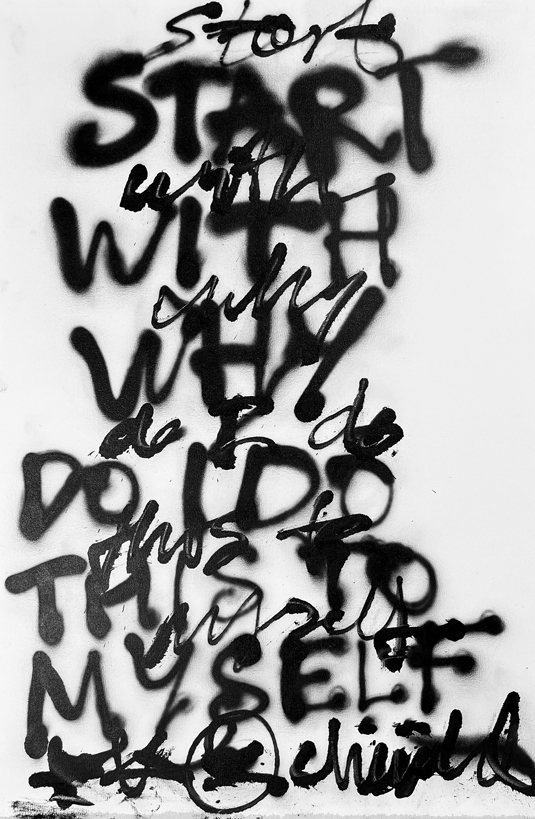 start
START
with
WITH
why
WHY
do I do
DO I DO
this to
THIS TO
myself
MYSELF